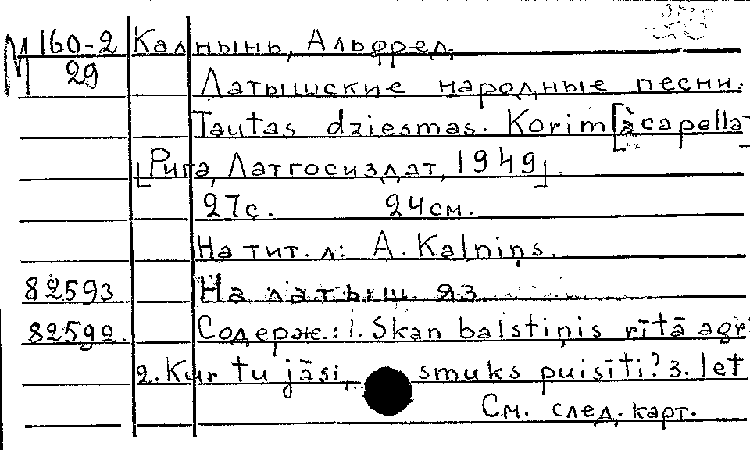 М 160-2 Калнынь, Альфред.
29
Латышские народные песни.
Tautas dziesmas. Korim [à capella]
[Рига, Латгосиздат, 1949].
27с. 24см.
На тит. л: A. Kalniņs.
82593 На латыш. яз
82592. Содерж.: 1. Skan balstiņis rītā agri
2. Kur tu jāsi, smuks puisīti? 3. Iet
См. след. карт.